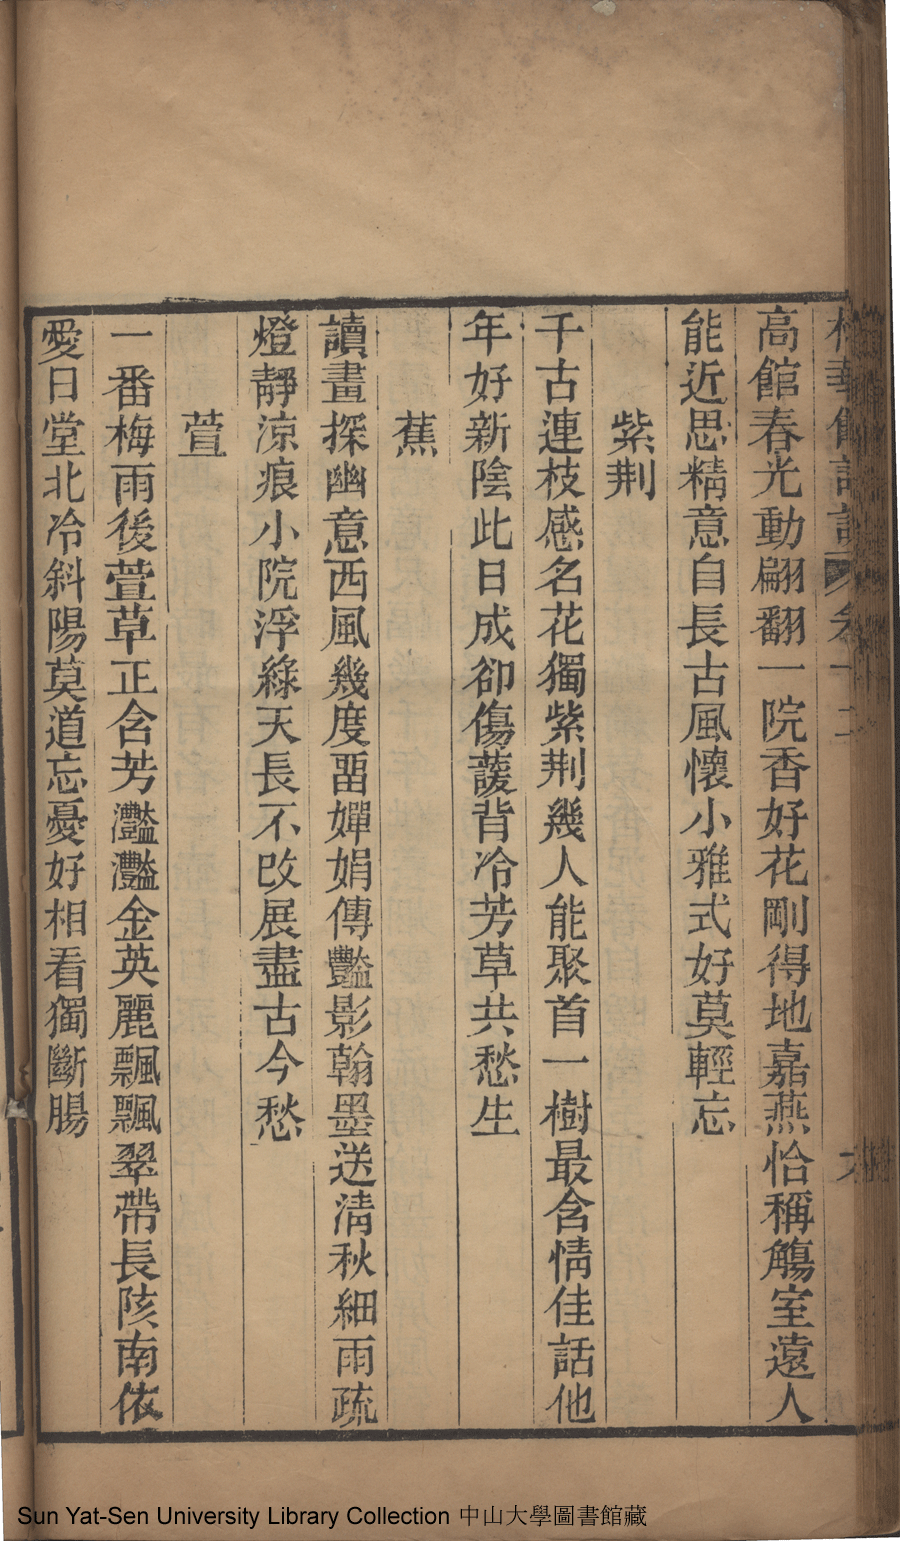 高館春光動翩翻一院香好花剛得地嘉燕恰稱觴室遠人
能近思精意自長古風懷小雅式好莫輕忘
紫荆
千古連枝感名花獨紫荆幾人能聚首一樹最含情佳話他
年好新陰此日成卻傷蘐背冷芳草共愁生
蕉
讀畫探幽意西風幾度畱嬋娟傳豔影翰墨送清秋細雨疏
燈靜涼痕小院浮綠天長不改展盡古今愁
萱
一番梅雨後萱草正含芳灩灩金英麗飄飄翠帶長陔南依
愛日堂北冷斜陽莫道忘憂好相看獨斷腸
Sun Yat-Sen University Library Collection 中山大學圖書館藏